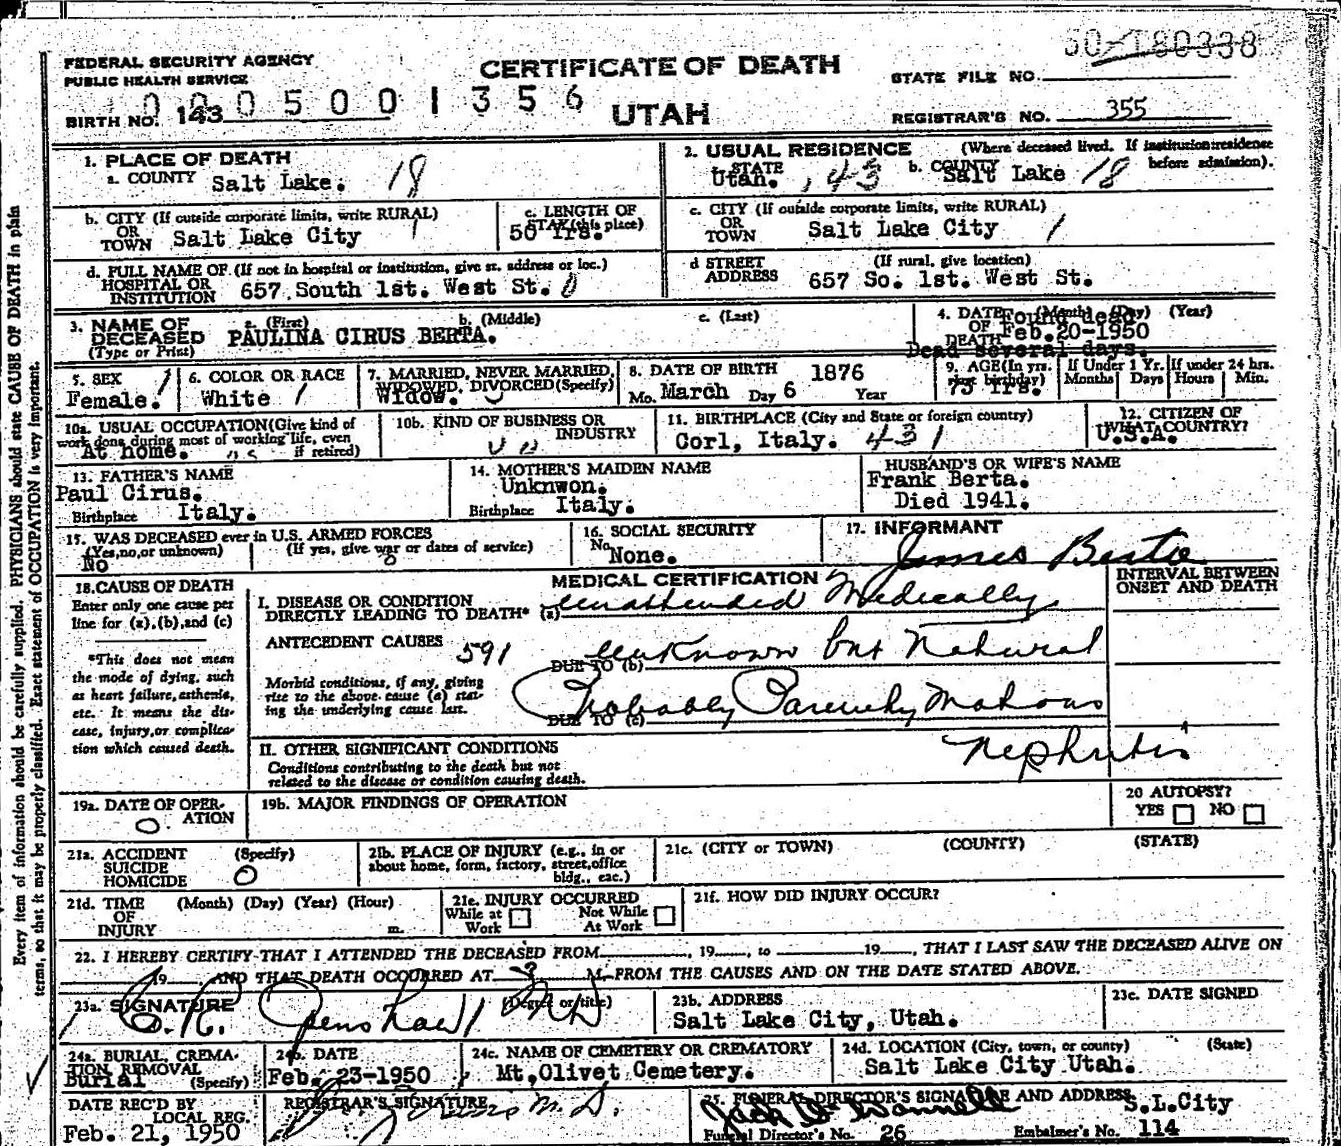 50-180338
FEDERAL SECURITY AGENCY
PUBLIC HEALTH SERVICE
CERTIFICATE OF DEATH
UTAH
STATE FILE NO.
0005001356
BIRTH NO. 143
REGISTRAR'S NO. 355
1. PLACE OF DEATH
a. COUNTY Salt Lake. 18
2. USUAL RESIDENCE (Where deceased lived. If institution: residence before admission).
a. STATE Utah. , 43 b. COUNTY Salt Lake 18
b. CITY (If outside corporate limits, write RURAL)
OR
TOWN Salt Lake City 1
c. LENGTH OF
STAY (this place)
50 Yrs.
c. CITY (If outside corporate limits, write RURAL)
OR
TOWN Salt Lake City 1
d. FULL NAME OF (If not in hospital or institution, give st. address or loc.)
HOSPITAL OR
INSTITUTION 657 South 1st. West St. 0
d STREET (If rural, give location)
ADDRESS 657 So. 1st. West St.
3. NAME OF DECEASED
(Type or Print)
a. (First) b. (Middle) c. (Last)
PAULINA CIRUS BERTA.
4. DATE OF DEATH (Month) (Day) (Year)
Found dead
Feb.20-1950
Dead several days.
5. SEX
Female. 1
6. COLOR OR RACE
White 1
7. MARRIED, NEVER MARRIED,
WIDOWED, DIVORCED (Specify)
Widow.
8. DATE OF BIRTH 1876
Mo. March Day 6 Year
9. AGE (In yrs. last birthday)
73 Yrs.
If Under 1 Yr.
Months Days
If under 24 hrs.
Hours Min.
10a. USUAL OCCUPATION (Give kind of
work done during most of working life, even
if retired)
At home.
10b. KIND OF BUSINESS OR
INDUSTRY
11. BIRTHPLACE (City and State or foreign country)
Corl, Italy. 431
12. CITIZEN OF
WHAT COUNTRY?
U.S.A.
13. FATHER'S NAME
Paul Cirus.
Birthplace Italy.
14. MOTHER'S MAIDEN NAME
Unknwon.
Birthplace Italy.
HUSBAND'S OR WIFE'S NAME
Frank Berta.
Died 1941.
15. WAS DECEASED ever in U.S. ARMED FORCES
(Yes, no, or unknown) (If yes, give war or dates of service)
No
16. SOCIAL SECURITY
No None.
17. INFORMANT
James Berta
18. CAUSE OF DEATH
Enter only one cause per
line for (a), (b), and (c)
*This does not mean
the mode of dying, such
as heart failure, asthenia,
etc. It means the dis-
ease, injury, or complica-
tion which caused death.
MEDICAL CERTIFICATION
INTERVAL BETWEEN
ONSET AND DEATH
I. DISEASE OR CONDITION
DIRECTLY LEADING TO DEATH* (a) Unattended Medically
ANTECEDENT CAUSES 591
DUE TO (b) Unknown but Natural
Morbid conditions, if any, giving
rise to the above cause (a) stat-
ing the underlying cause last.
DUE TO (c) Probably Parenchymatous
Nephritis
II. OTHER SIGNIFICANT CONDITIONS
Conditions contributing to the death but not
related to the disease or condition causing death.
19a. DATE OF OPER-
ATION
0.
19b. MAJOR FINDINGS OF OPERATION
20 AUTOPSY?
YES NO
21a. ACCIDENT (Specify)
SUICIDE
HOMICIDE 0
21b. PLACE OF INJURY (e.g., in or
about home, form, factory, street, office
bldg., etc.)
21c. (CITY or TOWN) (COUNTY) (STATE)
21d. TIME (Month) (Day) (Year) (Hour)
OF
INJURY m.
21e. INJURY OCCURRED
While at Work Not While At Work
21f. HOW DID INJURY OCCUR?
22. I HEREBY CERTIFY THAT I ATTENDED THE DECEASED FROM , 19 , to 19 , THAT I LAST SAW THE DECEASED ALIVE ON
19 AND THAT DEATH OCCURRED AT ? M. FROM THE CAUSES AND ON THE DATE STATED ABOVE.
23a. SIGNATURE (Degree or title)
MD
23b. ADDRESS
Salt Lake City, Utah.
23c. DATE SIGNED
24a. BURIAL, CREMA-
TION, REMOVAL
Burial (Specify)
24b. DATE
Feb. 23-1950
24c. NAME OF CEMETERY OR CREMATORY
Mt, Olivet Cemetery.
24d. LOCATION (City, town, or county) (State)
Salt Lake City Utah.
DATE REC'D BY
LOCAL REG.
Feb. 21, 1950
REGISTRAR'S SIGNATURE
M.D.
25. FUNERAL DIRECTOR'S SIGNATURE AND ADDRESS
S.L.City
Funeral Director's No. 26 Embalmer's No. 114
Every item of information should be carefully supplied. PHYSICIANS should state CAUSE OF DEATH in plain
terms, so that it may be properly classified. Exact statement of OCCUPATION is very important.